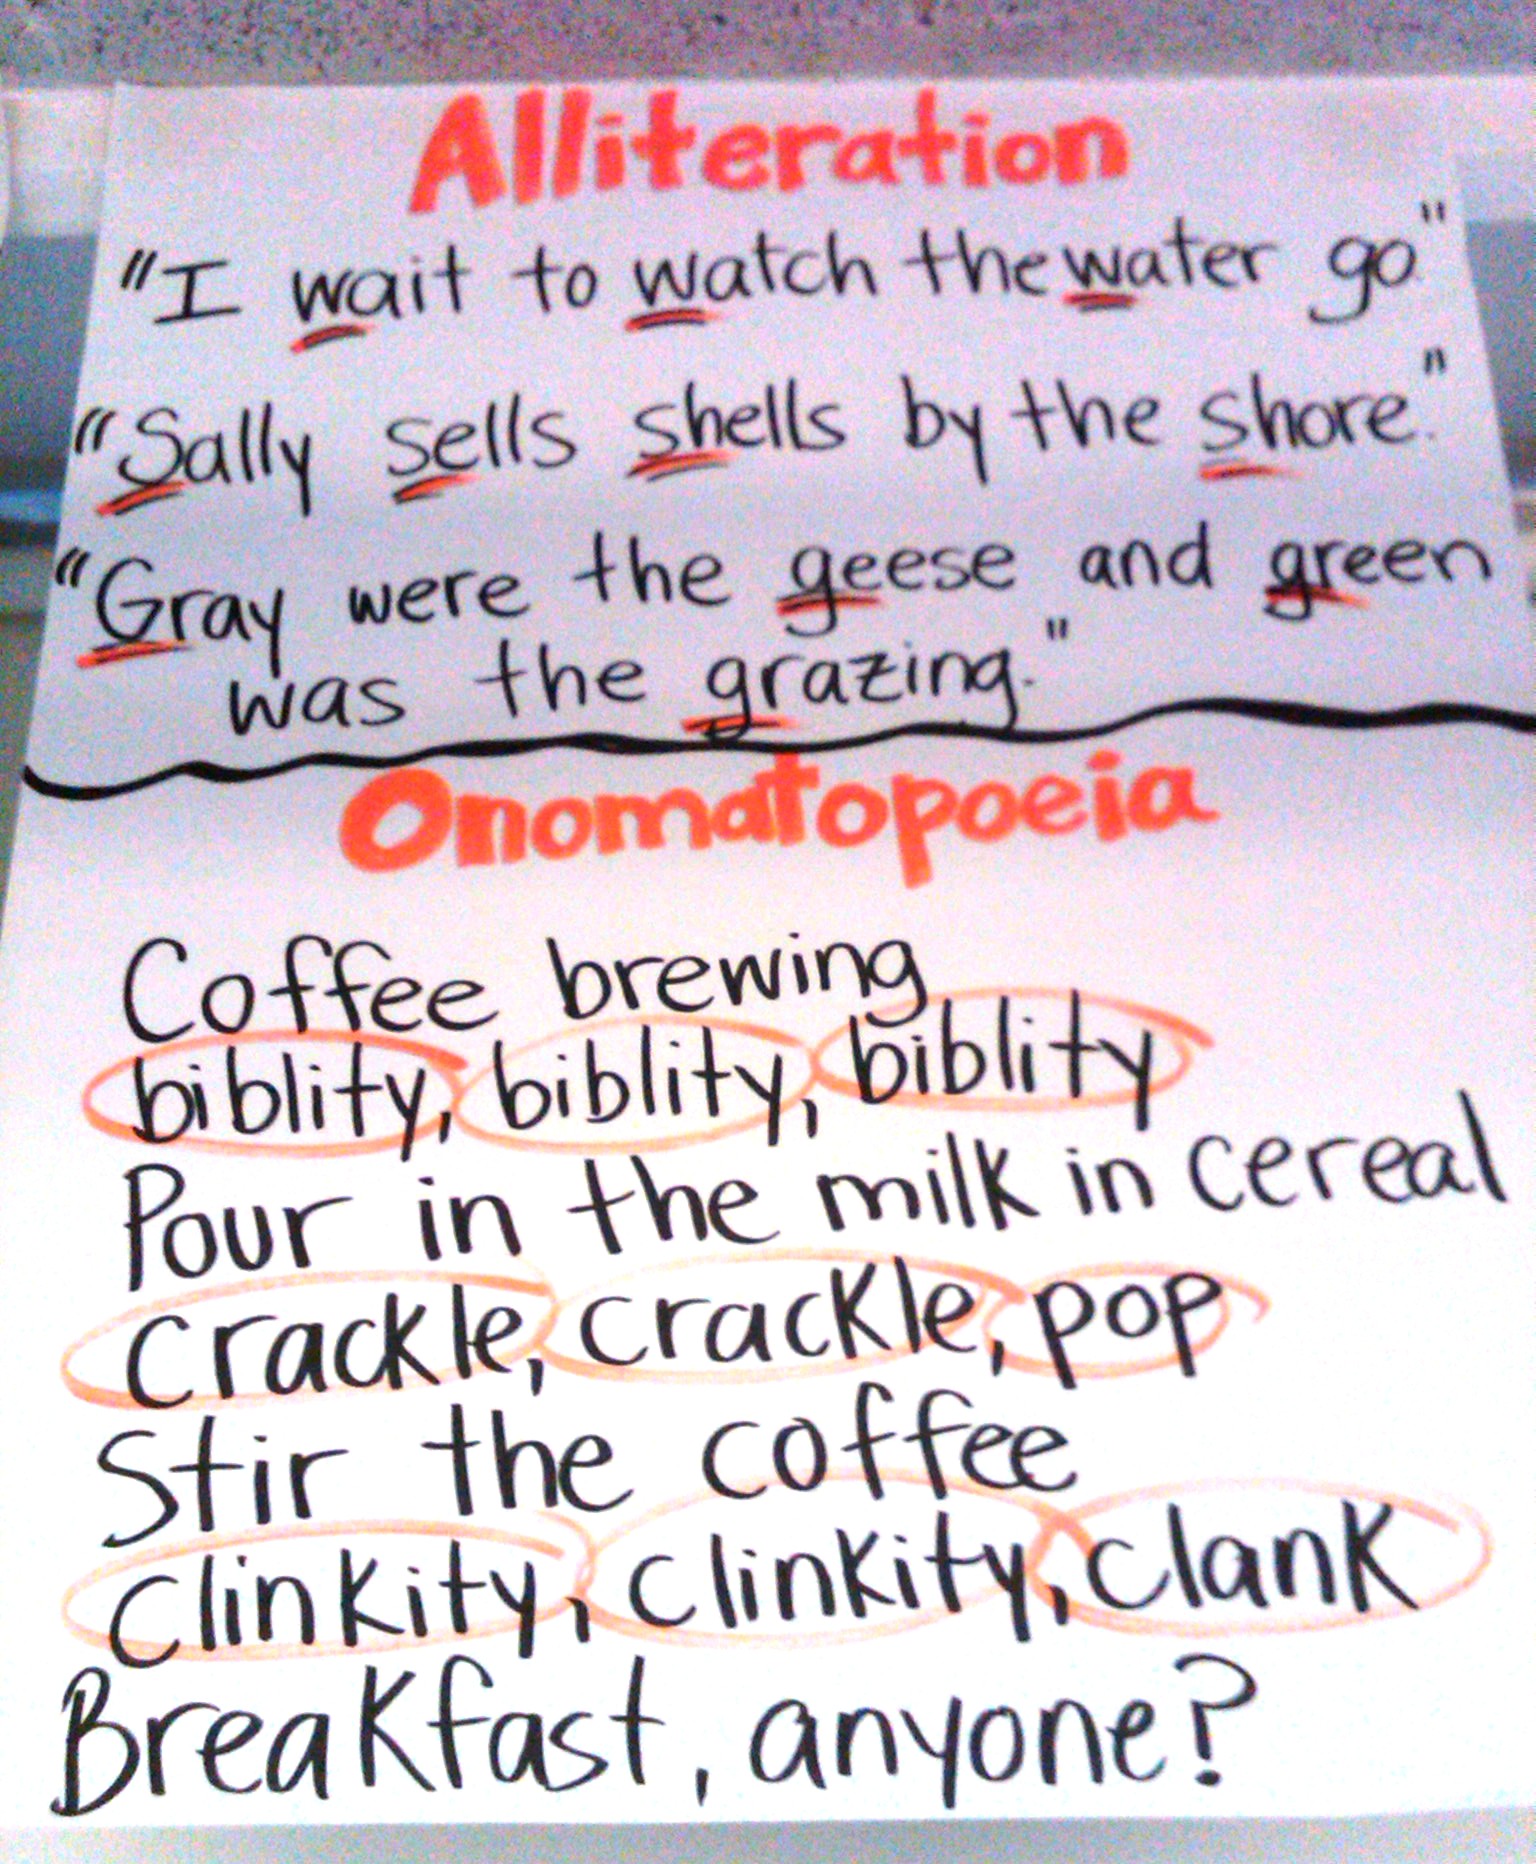 Alliteration
"I wait to watch the water go"
"Sally sells shells by the shore."
"Gray were the geese and green
was the grazing."
Onomatopoeia
Coffee brewing
biblity, biblity, biblity
Pour in the milk in cereal
Crackle, crackle, pop
Stir the coffee
Clinkity, clinkity, clank
Breakfast, anyone?